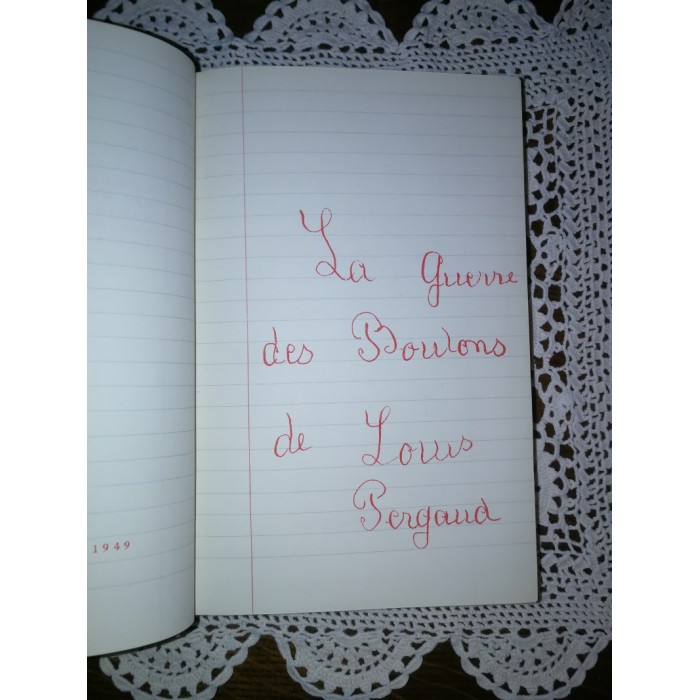 1949
La Guerre
des Boutons
de Louis
Pergaud